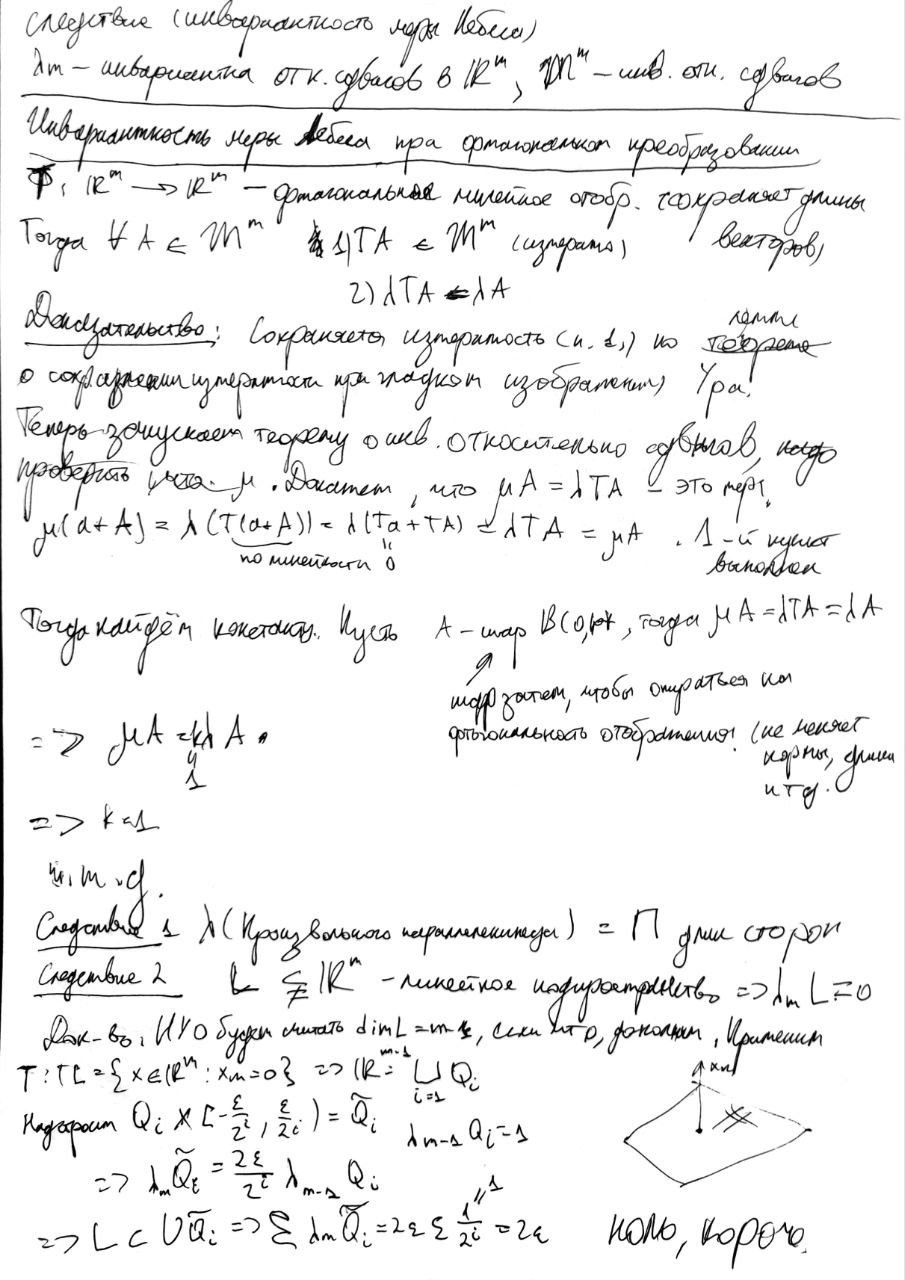 Следствие (инвариантность меры Лебега)
λm – инвариантна отн. сдвигов в ℝᵐ, 𝔐ᵐ – инв. отн. сдвигов
Инвариантность меры Лебега при ортогональном преобразовании
T: ℝᵐ → ℝᵐ – ортогональное линейное отобр. (сохраняет длины
Тогда ∀ A ∈ 𝔐ᵐ 1) TA ∈ 𝔐ᵐ (измеримо) векторов)
2) λTA = λA
Доказательство: Сохраняется измеримость (п. 1) по лемме
о сохранении измеримости при гладком изображении) Ура!
Теперь запускаем теорему о инв. относительно сдвигов, надо
проверить μ. Докажем, что μA = λTA – это мера
μ(a+A) = λ(T(a+A)) = λ(Ta+TA) = λTA = μA. 1-й пункт
по линейности 0 выполнен
Тогда найдём константу. Пусть A – шар B(0,1), тогда μA = λTA = λA
шар затем, чтобы опираться на
ортогональность отображения! (не меняет
нормы, длины
итд.
=> μA = kλA.
1
=> k = 1
ч.т.д.
Следствие 1 λ(Произвольного параллелепипеда) = Π длин сторон
Следствие 2 L ⊊ ℝᵐ – линейное подпространство => λm L = 0
Док-во, НУО будем считать dim L = m-1, если что, дополним, Применим
T: TL = {x ∈ ℝᵐ : xm = 0} => ℝᵐ⁻¹ = ⋃ Qi
i=1
xm
Надстроим Qi × [-ε/2ⁱ, ε/2ⁱ) = Q̃i λm-1 Qi = 1
=> λm Q̃i = 2ε/2ⁱ λm-1 Qi
1
=> L ⊂ ∪Q̃i => Σ λm Q̃i = 2ε Σ 1/2ⁱ = 2ε ноль, короче.